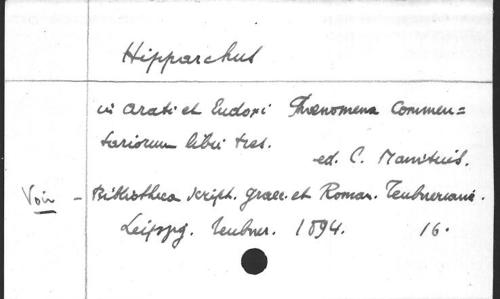 Hipparchus
in Arati et Eudoxi Phænomena Commen=
tariorum libri tres.
ed. C. Manitius.
Voir - Bibliotheca script. graec. et Roman. Teubneriana.
Leipzg. Teubner. 1894. 16.